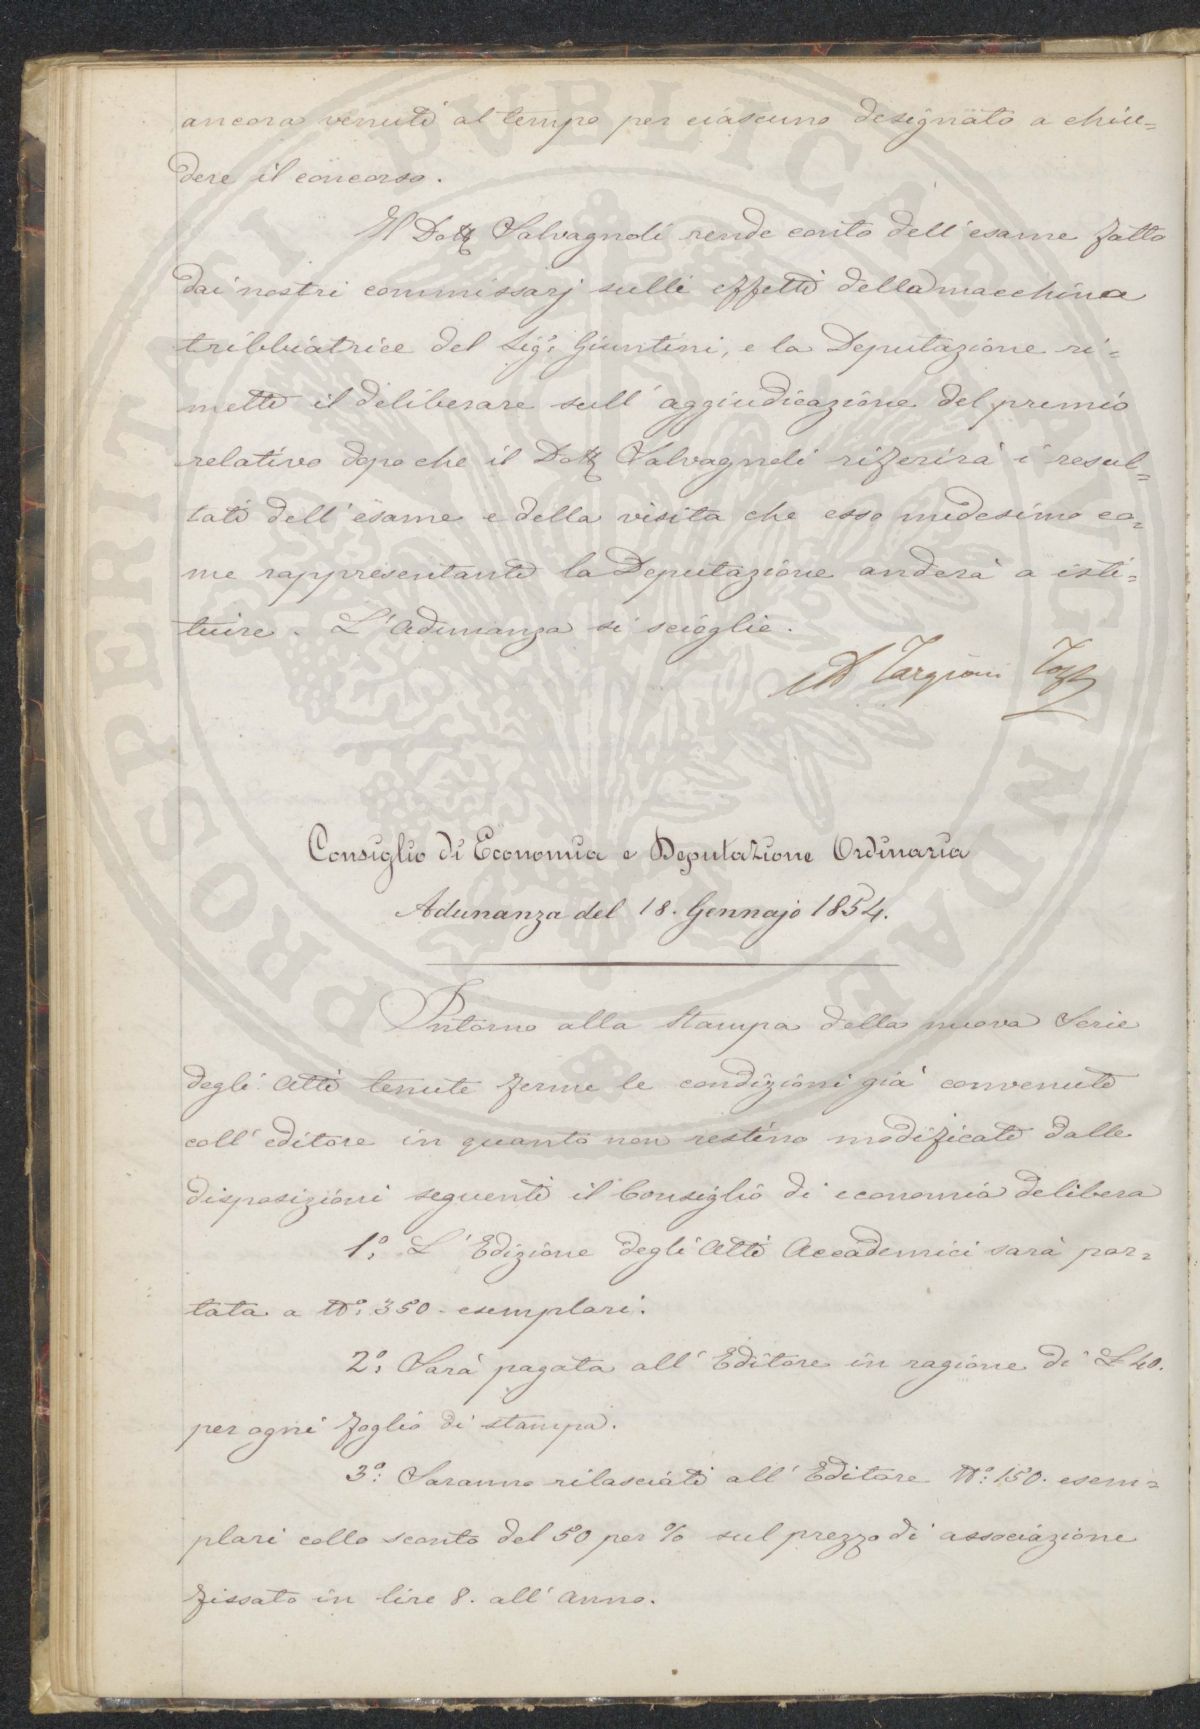 ancora venuti al tempo per ciascuno designato a chiu=
dere il concorso.
Il Dott Salvagnoli rende conto dell'esame fatto
dai nostri commissarj sulli effetti della macchina
tribbiatrice del Sig.r Giuntini, e la Deputazione ri=
mette il deliberare sull'aggiudicazione del premio
relativo dopo che il Dott Salvagnoli riferirà i resul=
tati dell'esame e della visita che esso medesimo co=
me rappresentante la Deputazione anderà a isti=
tuire. L'Adunanza si scioglie.
Targioni Tozz
Consiglio di Economia e Deputazione Ordinaria
Adunanza del 18. Gennajo 1854.
Intorno alla stampa della nuova Serie
degli Atti tenute ferme le condizioni già convenute
coll'editore in quanto non restino modificate dalle
disposizioni seguenti il Consiglio di economia delibera
1.° L'Edizione degli Atti Accademici sarà por=
tata a N.° 350. esemplari.
2.° Sarà pagata all'Editore in ragione di £ 40.
per ogni foglio di stampa.
3.° Saranno rilasciati all'Editore N.° 150. esem=
plari collo sconto del 50 per % sul prezzo di associazione
fissato in lire 8. all'anno.
PROSPERITATI PUBLICAE AUGENDAE